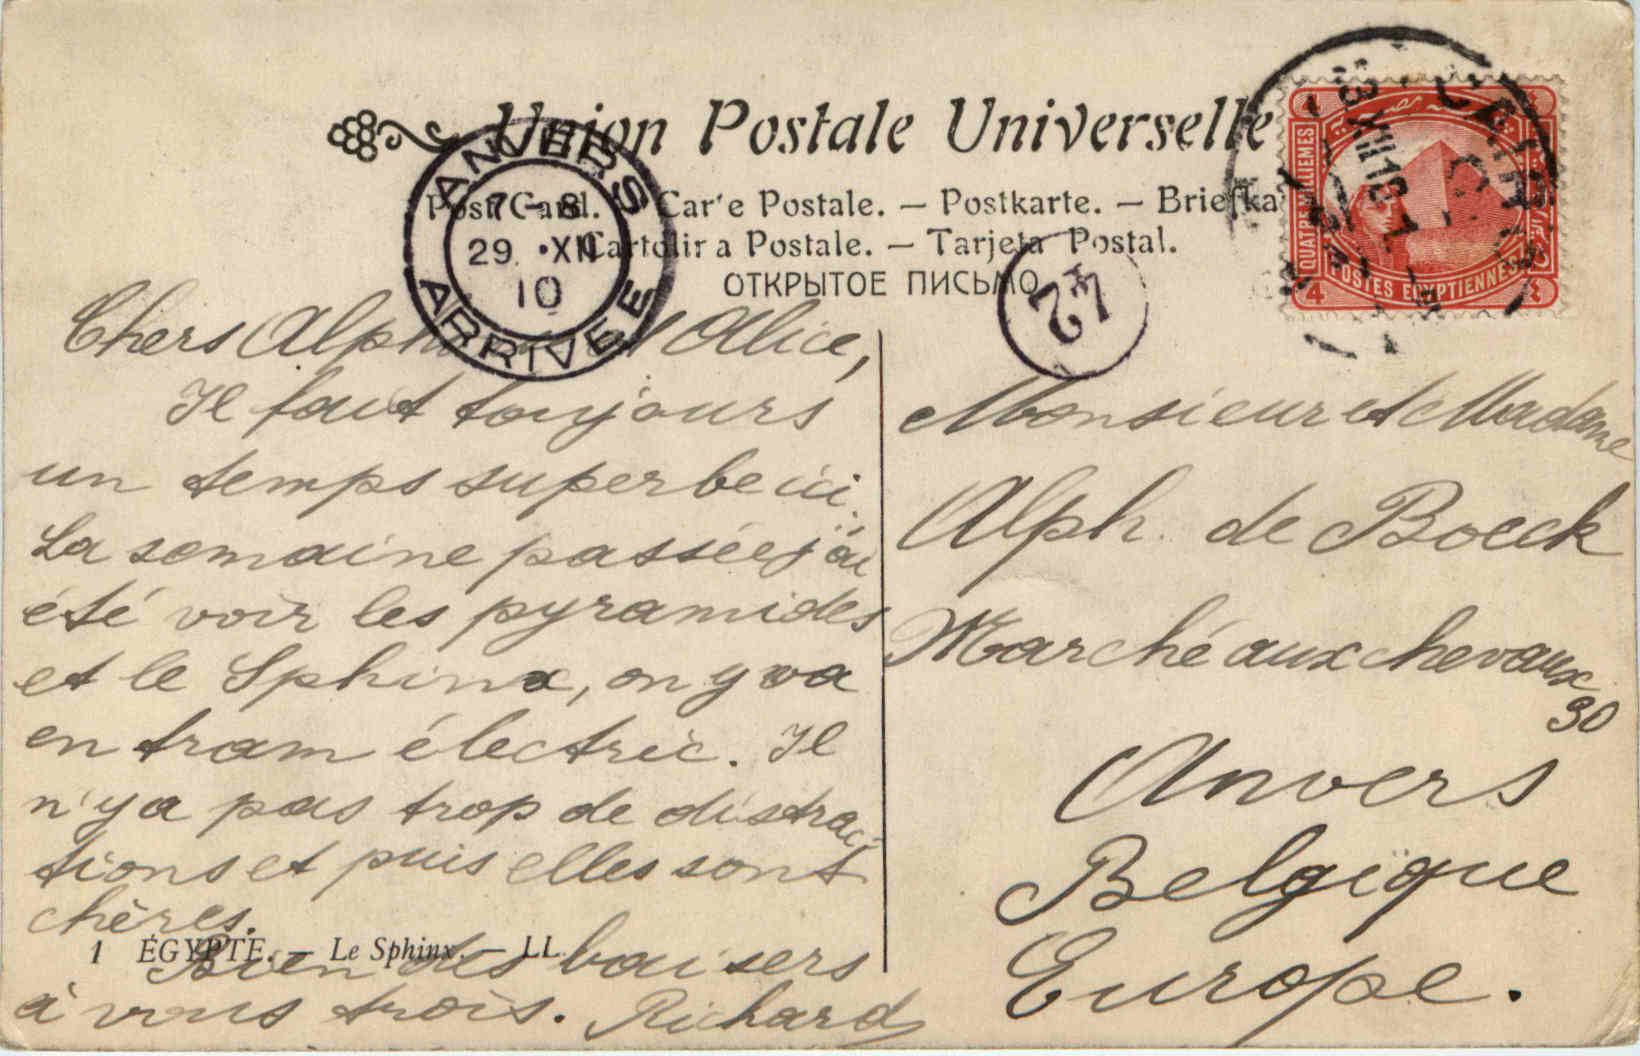 Union Postale Universelle
Post Card. — Car'e Postale. — Postkarte. — Briefka
Cartolira Postale. — Tarjeta Postal.
ОТКРЫТОЕ ПИСЬМО
ANVERS
7-8
29 • XII
10
ARRIVÉE
42
CAIR
XII 10
QUATRE MILLIEMES
POSTES EGYPTIENNES
4
٤
Chers Alph Alice,
Il fait toujours
un temps superbe ici.
La semaine passée j'ai
été voir les pyramides
et le Sphinx, on y va
en tram électric. Il
n'y a pas trop de distrac-
tions et puis elles sont
chères.
Bien des baisers
à vous trois. Richard
1 ÉGYPTE. — Le Sphinx. — LL.
Monsieur et Madame
Alph. de Boeck
Marché aux chevaux
90
Anvers
Belgique
Europe.